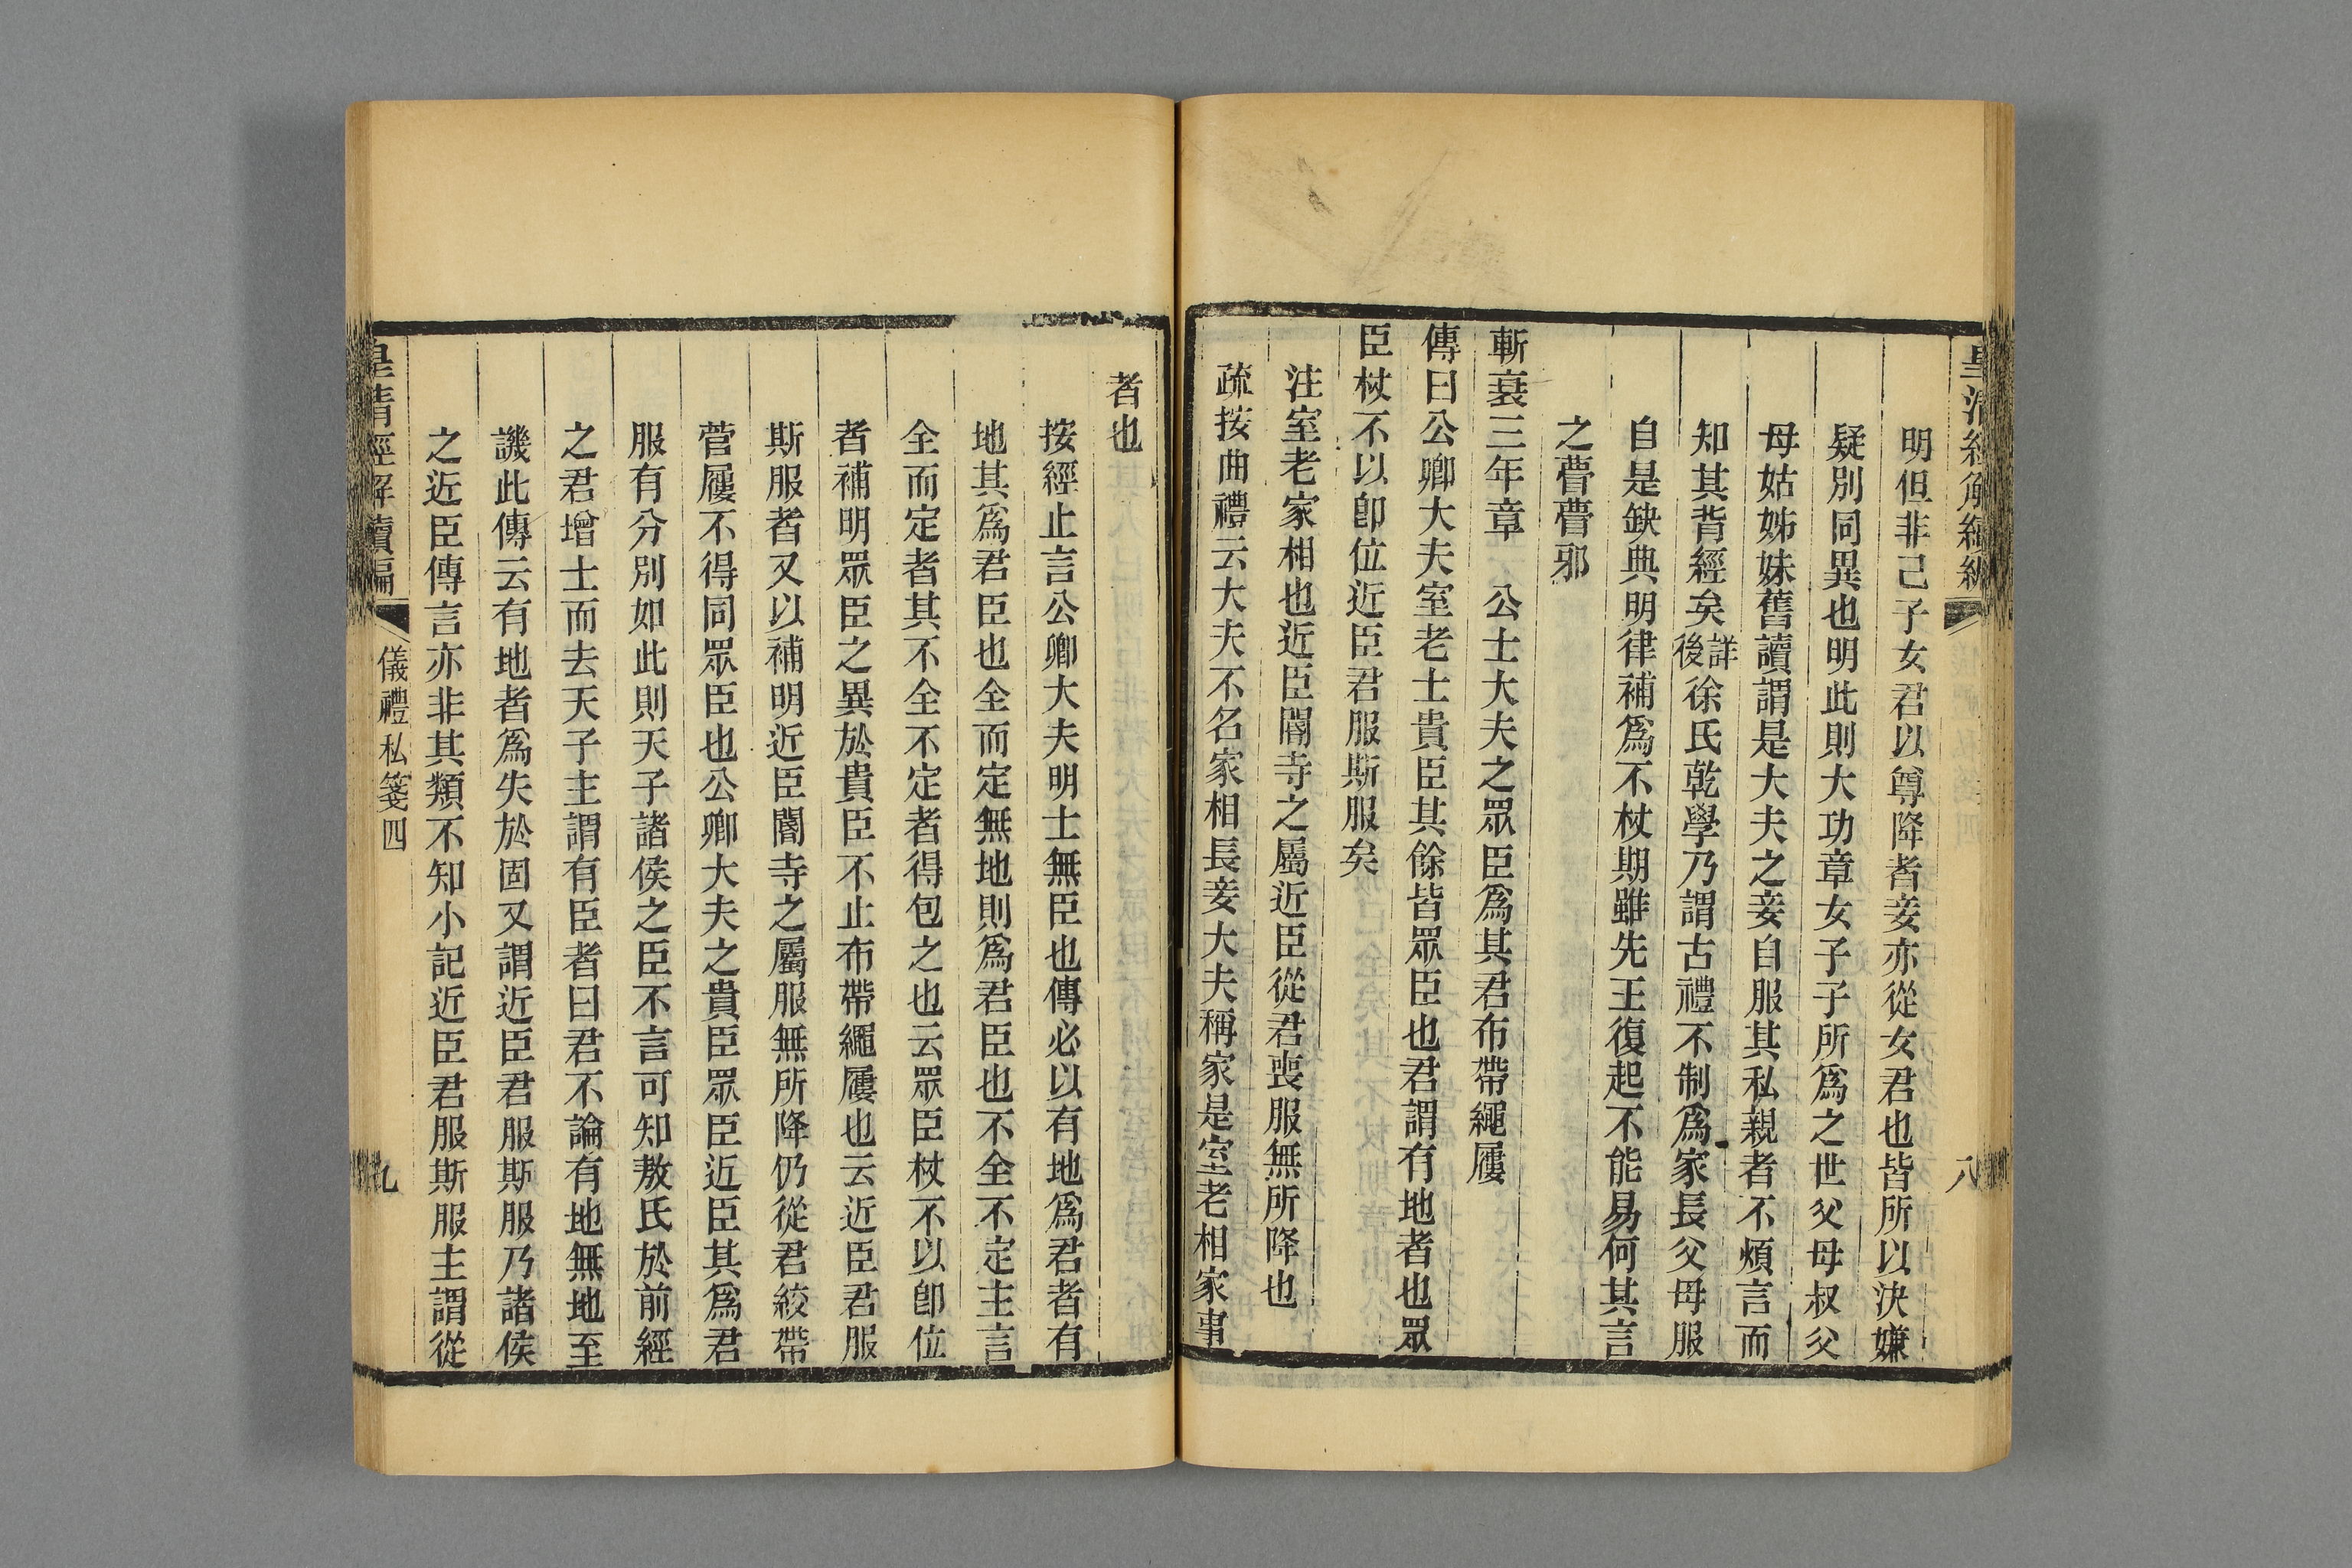 皇清經解續編
八
明但非己子女君以尊降者妾亦從女君也皆所以決嫌
疑別同異也明此則大功章女子子所爲之世父母叔父
母姑姊妹舊讀謂是大夫之妾自服其私親者不煩言而
知其背經矣詳後徐氏乾學乃謂古禮不制爲家長父母服
自是缺典明律補爲不杖期雖先王復起不能易何其言
之瞢瞢邪
斬衰三年章　公士大夫之眾臣爲其君布帶繩屨
傳曰公卿大夫室老士貴臣其餘皆眾臣也君謂有地者也眾
臣杖不以卽位近臣君服斯服矣
注室老家相也近臣閽寺之屬近臣從君喪服無所降也
疏按曲禮云大夫不名家相長妾大夫稱家是室老相家事
者也
按經止言公卿大夫明士無臣也傳必以有地爲君者有
地其爲君臣也全而定無地則爲君臣也不全不定主言
全而定者其不全不定者得包之也云眾臣杖不以卽位
者補明眾臣之異於貴臣不止布帶繩屨也云近臣君服
斯服者又以補明近臣閽寺之屬服無所降仍從君絞帶
菅屨不得同眾臣也公卿大夫之貴臣眾臣近臣其爲君
服有分別如此則天子諸侯之臣不言可知敖氏於前經
之君增士而去天子主謂有臣者曰君不論有地無地至
譏此傳云有地者爲失於固又謂近臣君服斯服乃諸侯
之近臣傳言亦非其類不知小記近臣君服斯服主謂從
皇清經解續編
儀禮私箋四
九